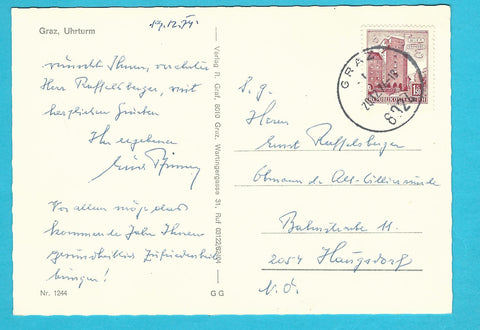 Graz, Uhrturm
19.12.74
wünscht Ihnen, verehrter
Herr Raffelsberger, mit
herzlichen Grüßen
Ihr ergebener
Vor allem möge das
kommende Jahr Ihnen
gesundheitlich Zufriedenheit
bringen!
Nr. 1244
Verlag R. Graf, 8010 Graz, Wurmbergergasse 31, Ruf
G G
GRAZ
S. g.
Herrn
Ernst Raffelsberger
Obmann der
Bahnstraße 11
2054 Haugsdorf
N.Ö.